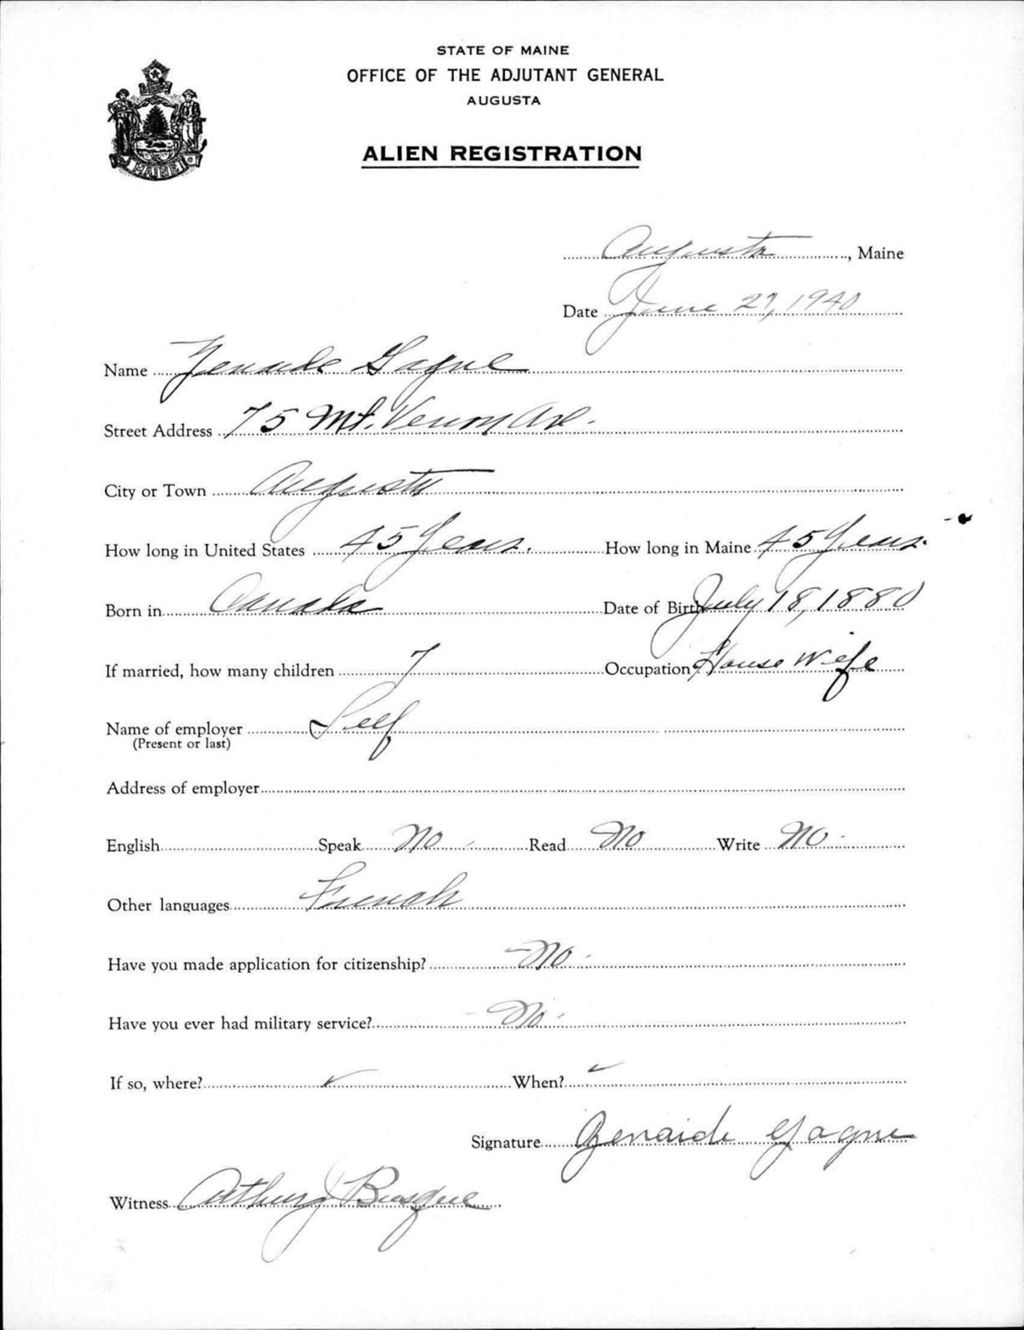 STATE OF MAINE
OFFICE OF THE ADJUTANT GENERAL
AUGUSTA
ALIEN REGISTRATION
MAINE
Augusta, Maine
Date June 27, 1940
Name Zenaide Gagne
Street Address 75 Mt. Vernon Ave.
City or Town Augusta
How long in United States 45 Years. How long in Maine 45 Years.
Born in Canada Date of Birth July 18, 1880
If married, how many children 7 Occupation House Wife
Name of employer Self
(Present or last)
Address of employer
English Speak No Read No Write No
Other languages French
Have you made application for citizenship? No
Have you ever had military service? No
If so, where? When?
Signature Zenaide Gagne
Witness Arthur J Busque